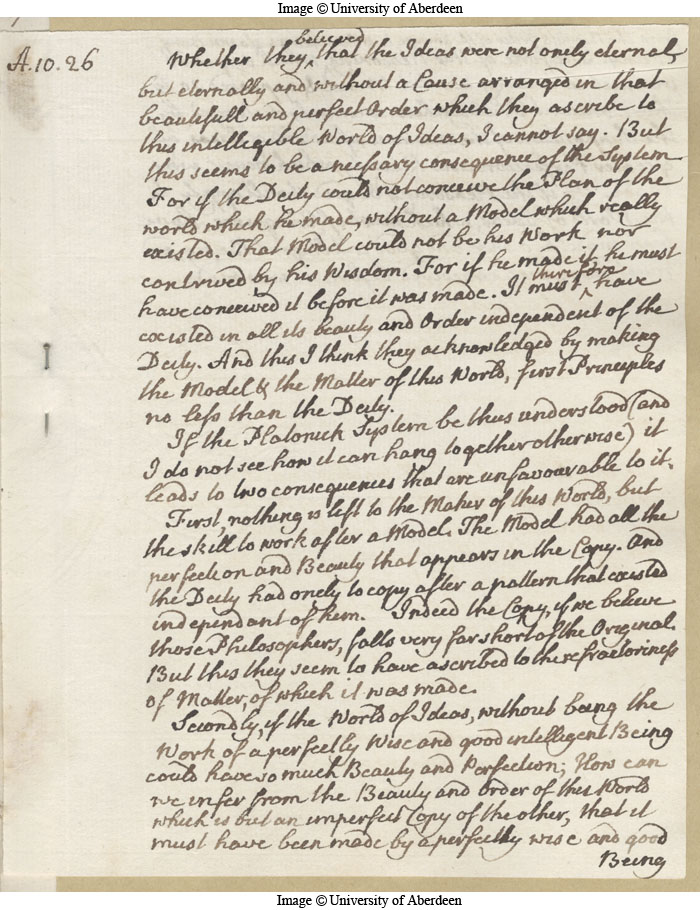 Image © University of Aberdeen
7
A.10.26
believed
Whether they ‸ that the Ideas were not onely eternal,
but eternally and without a Cause arranged in that
beautifull and perfect Order which they ascribe to
this intelligible World of Ideas, I cannot say. But
this seems to be a necessary consequence of the System
For if the Deity could not conceive the Plan of the
world which he made, without a Model which really
existed. That Model could not be his Work nor
contrived by his Wisdom. For if he made it he must
have conceived it before it was made. It must ‸ have
therefore
coexisted in all its beauty and Order independent of the
Deity. And this I think they acknowledged by making
the Model & the Matter of this World, first Principles
no less than the Deity.
If the Platonick System be thus understood (and
I do not see how it can hang together otherwise) it
leads to two consequences that are unfavourable to it.
First, nothing is left to the Maker of this World, but
the skill to work after a Model. The Model had all the
perfection and Beauty that appears in the Copy. And
the Deity had onely to copy after a pattern that existed
independant of him. Indeed the Copy, if we believe
those Philosophers, falls very far short of the Original.
But this they seem to have ascribed to the refractoriness
of Matter, of which it was made.
Secondly, if the World of Ideas, without being the
Work of a perfectly Wise and good intelligent Being
could have so much Beauty and Perfection; How can
we infer from the Beauty and order of this World
which is but an imperfect Copy of the other, that it
must have been made by a perfectly wise and good
Being
Image © University of Aberdeen